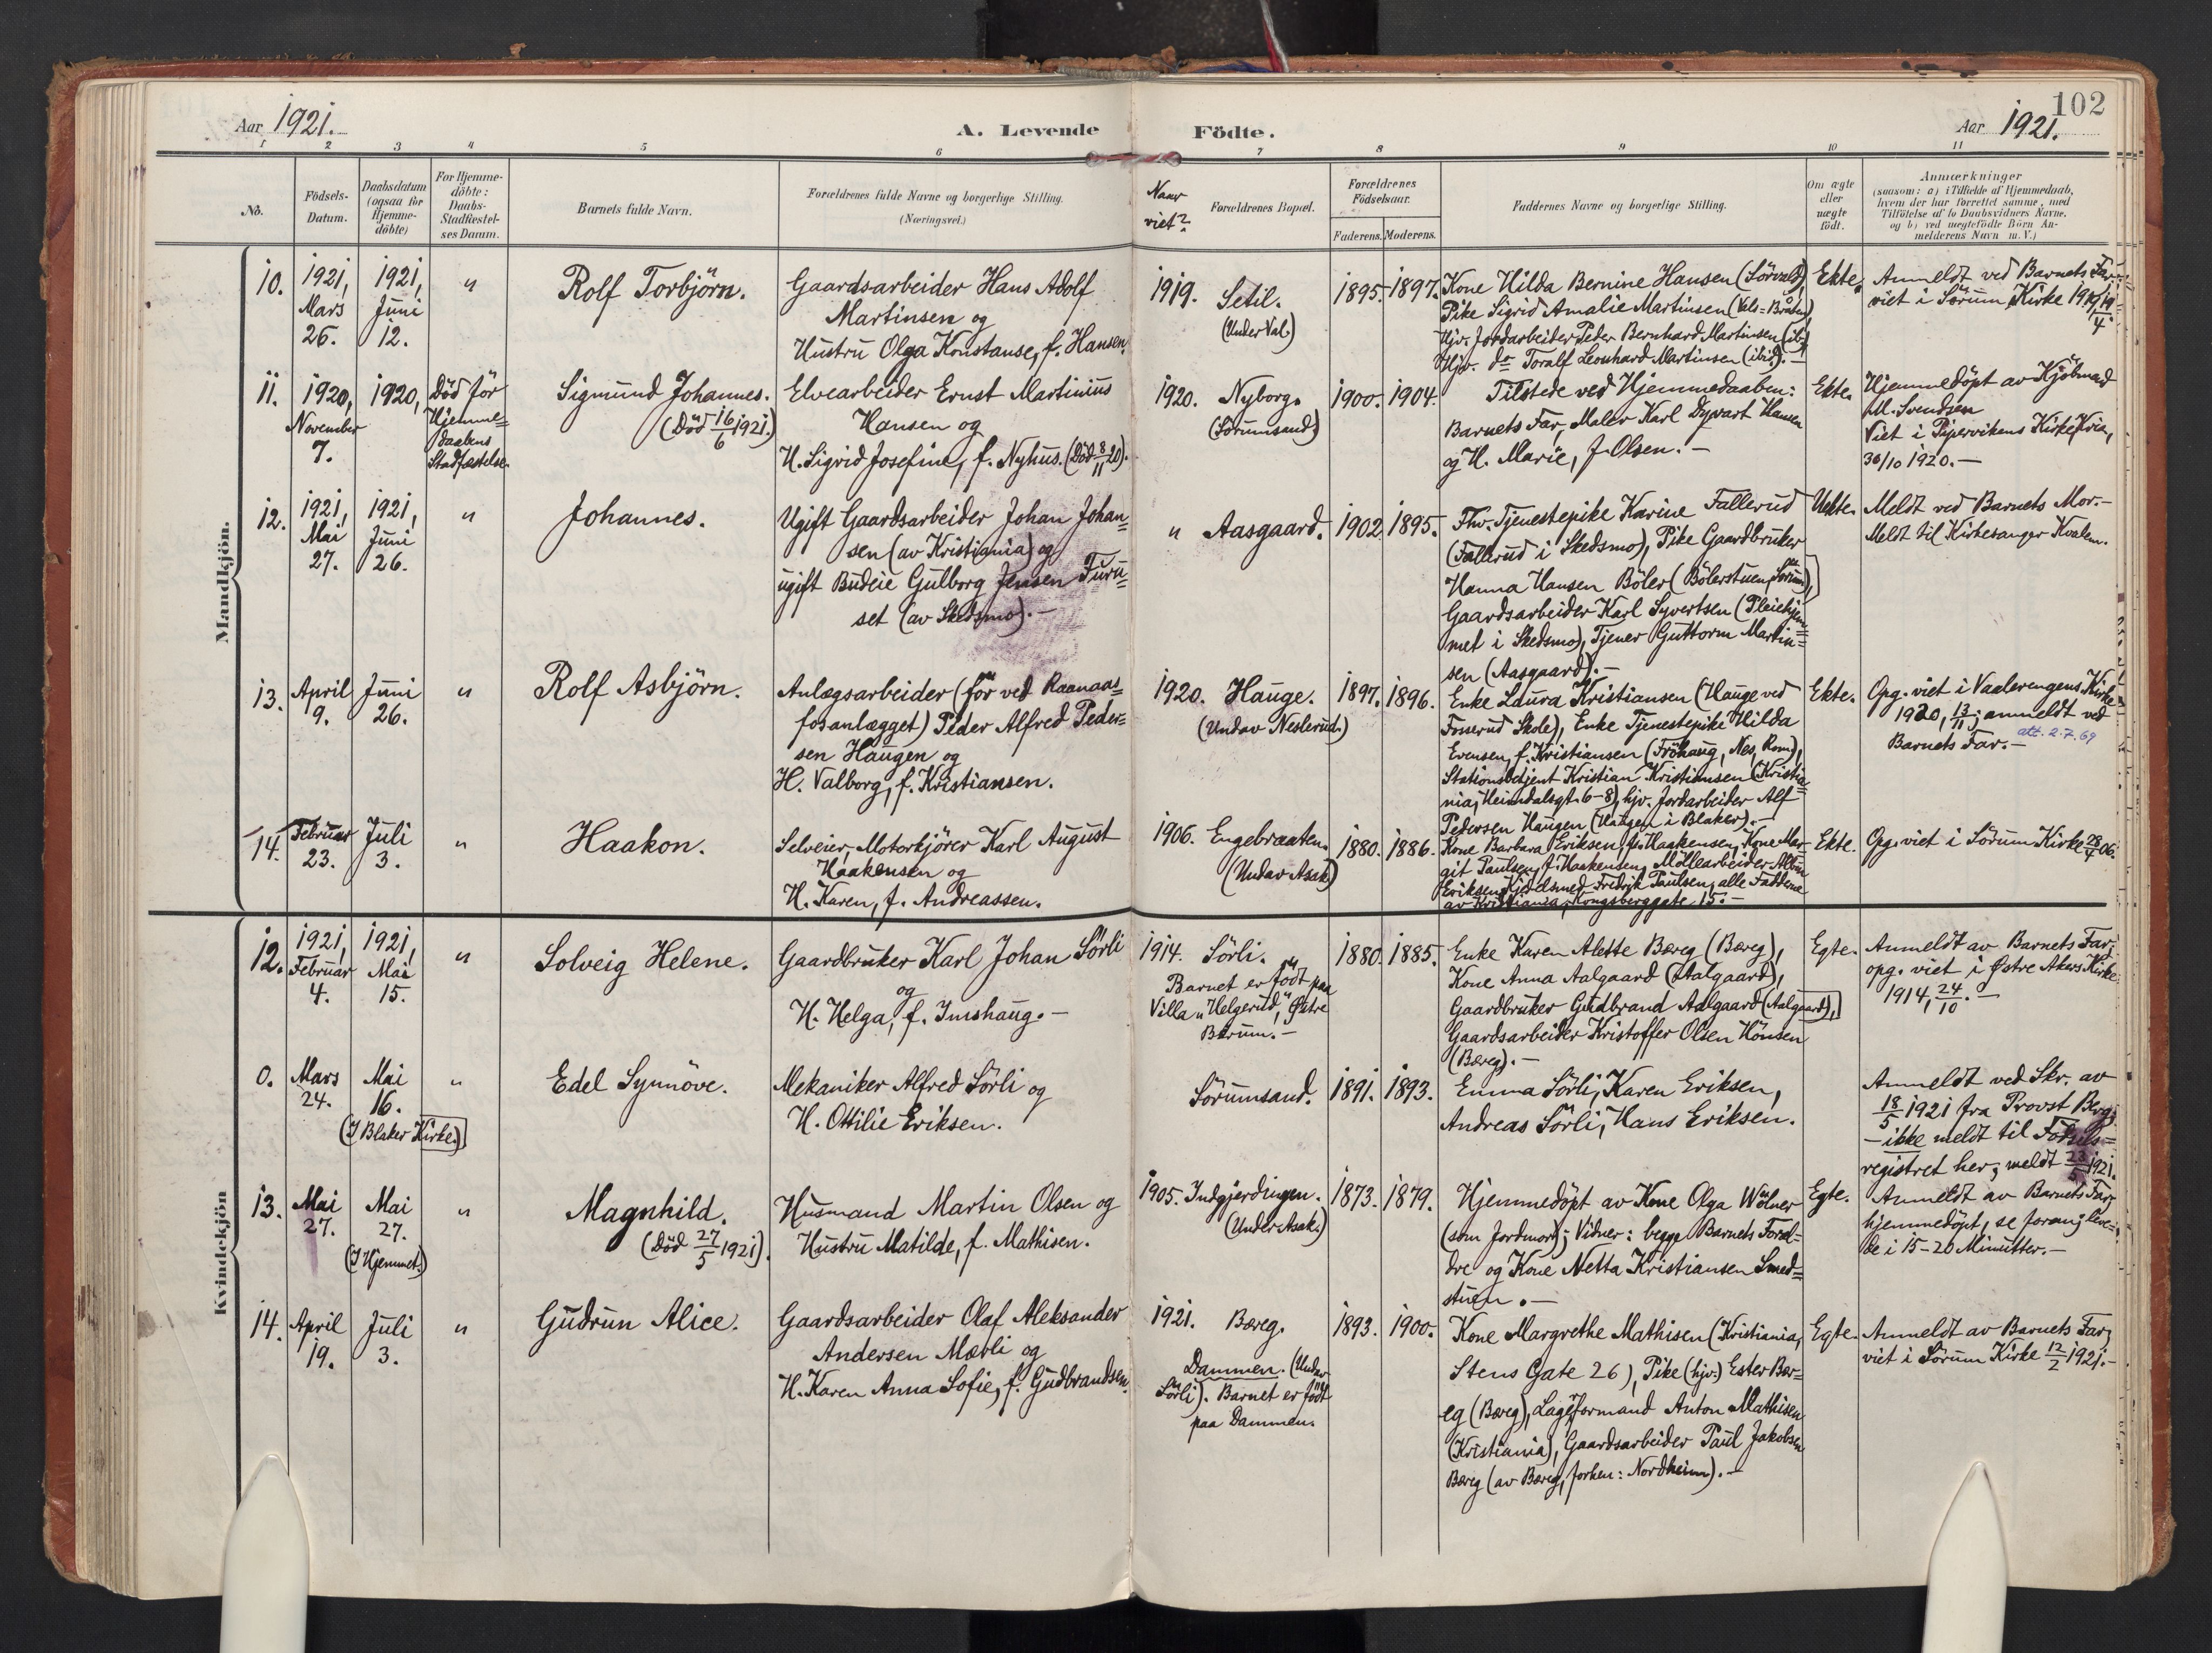 102
Aar 1921.
A. Levende Födte.
Aar 1921.
1 2 3 4 5 6 7 8 9 10 11
No.
Födsels-
Datum.
Daabsdatum
(ogsaa for
Hjemme-
döbte)
For Hjemme-
döbte:
Daabs-
Stadfæstel-
ses Datum.
Barnets fulde Navn.
Forældrenes fulde Navne og borgerlige Stilling.
(Næringsvei.)
Naar
viet?
Forældrenes Bopæl.
Forældrenes
Födselsaar.
Faderens.
Moderens.
Faddernes Navne og borgerlige Stilling.
Om ægte
eller
uægte
födt.
Anmærkninger
(saasom: a) i Tilfælde af Hjemmedaab,
hvem der har forrettet samme, med
Tilföielse af to Daabsvidners Navne,
og b) ved uægtefödte Börn An-
melderens Navn m. V.)
Mandkjön.
10.
1921,
Mars
26.
1921,
Juni
12.
"
Rolf Torbjörn.
Gaardsarbeider Hans Adolf
Martinsen og
Hustru Olga Konstanse, f. Hansen.
1919.
Setil.
(Under Val.)
1895.
1897.
Kone Hilda Bernine Hansen (Sörvald),
Pike Sigrid Amalie Martinsen (Vals=Bråten),
Hjv. Jordarbeider Peder Bernhard Martinsen (ib.)
Hjv. do Toralf Leonhard Martinsen (ibid). —
Ekte.
Anmeldt ved Barnets Far;
viet i Sörum Kirke 1919, 19/4.
11.
1920,
November
7.
1920,
Död för
Hjemme=
daabens
Stadfæstelse.
Sigmund Johannes.
(Död 16/6 1921.)
Elvearbeider Ernst Martinius
Hansen og
H. Sigrid Josefine, f. Nyhus. (Död 8/11 20).
1920.
Nyborg.
(Sörumsand)
1900.
1904.
Tilstede ved Hjemmedaaben:
Barnets Far, Maler Karl Dyvart Hansen
og H. Marie, f. Olsen. —
Ekte.
Hjemmedöpt av Kjöbmad
M. Svendsen
Viet i Pipervikens Kirke, Kria,
30/10 1920. —
12.
1921,
Mai
27.
1921,
Juni
26.
"
Johannes.
Ugift Gaardsarbeider Johan Johan=
sen (av Kristiania) og
ugift Budeie Gulborg Jensen Furu=
set (av Skedsmo). —
"
Aasgaard.
1902.
1895.
Fhv. Tjenestepike Karine Fallerud
(Fallerud i Skedsmo), Pike Gaardbruker
Hanna Hansen Böler (Bölerstuen, Sörum),
Gaardsarbeider Karl Syvertsen (Pleiehjem=
met i Skedsmo), Tjener Guttorm Martin=
sen (Aasgaard). —
Uekte.
Meldt ved Barnets Mor. —
Meldt til Kirkesanger Kvalem.
13.
April
9.
Juni
26.
"
Rolf Asbjörn.
Anlægsarbeider (för ved Raanaas=
fosanlægget) Peder Alfred Peder=
sen Haugen og
H. Valborg, f. Kristiansen.
1920.
Hauge.
(Undav Neslerud.)
1897.
1896.
Enke Laura Kristiansen (Hauge ved
Fosserud Skole), Enke Tjenestepike Hilda
Evensen, f. Kristiansen (Fröhaug, Nes, Rom),
Stationsbetjent Kristian Kristiansen (Kristia=
nia, Heimdalsgt. 6-8), hjv. Jordarbeider Alf
Pedersen Haugen (Haugen i Blaker). —
Ekte.
Opg. viet i Vaalerengens Kirke
1920, 13/11; anmeldt ved
Barnets Far. —
att. 2.7.69
14.
Februar
23.
Juli
3.
"
Haakon.
Selveier, Motorkjörer Karl August
Haakensen og
H. Karen, f. Andreassen.
1906.
Engebraaten.
(Undav Asak)
1880.
1886.
Kone Barbara Eriksen, f. Haakensen, Kone Mar=
git Paulsen, f. Haakensen, Möllearbeider Albin
Eriksen, Kjedelsmed Fredrik Paulsen, alle Faddrene
av Kristiania, Kongsberggate 15. —
Ekte.
Opg. viet i Sörum Kirke 28/4 06.
Kvindekjön
12.
1921,
Februar
4.
1921,
Mai
15.
"
Solveig Helene.
Gaardbruker Karl Johan Sörli
og
H. Helga, f. Imshaug. —
1914.
Sörli.
Barnet er födt paa
Villa "Helgerud", Östre
Bærum. —
1880.
1885.
Enke Karen Alette Bæreg (Bæreg),
Kone Anna Aalgaard (Aalgaard),
Gaardbruker Gudbrand Aalgaard (Aalgaard),
Gaardsarbeider Kristoffer Olsen Hönsen
(Bæreg). —
Egte.
Anmeldt av Barnets Far;
opg. viet i Østre Akers Kirke
1914, 24/10. —
0.
Mars
24.
Mai
16.
(I Blaker Kirke.)
"
Edel Synnöve.
Mekaniker Alfred Sörli og
H. Ottilie Eriksen.
Sörumsand.
1891.
1893.
Emma Sörli, Karen Eriksen,
Andreas Sörli, Hans Eriksen.
Anmeldt ved Skr. av
18/5 1921 fra Provst Berg.
— ikke meldt til Födsels=
registret her; meldt 23/5 1921.
13.
Mai
27.
Mai
27.
(I Hjemmet.)
"
Magnhild.
(Död 27/5 1921).
Husmand Martin Olsen og
Hustru Matilde, f. Mathisen.
1905.
Indgjerdingen.
(Under Asak.)
1873.
1879.
Hjemmedöpt av Kone Olga Wölner
(som Jordmor); Vidner: begge Barnets Foræl=
dre og Kone Netta Kristiansen Smed=
stuen. —
Egte.
Anmeldt av Barnets Far;
hjemmedöpt, se foran; leve=
de i 15-20 Minutter. —
14.
April
19.
Juli
3.
"
Gudrun Alice.
Gaardsarbeider Olaf Aleksander
Andersen Mærli og
H. Karen Anna Sofie, f. Gudbrandsen.
1921.
Bæreg.
Dammen. (Under
Sörli). Barnet er födt
paa Dammen.
1893.
1900.
Kone Margrethe Mathisen (Kristiania,
Stens Gate 26), Pike (hjv.) Ester Bær=
eg (Bæreg), Lagerformand Anton Mathisen
(Kristiania), Gaardsarbeider Paul Jakobsen
Bæreg (av Bæreg, forhen: Nordheim). —
Egte.
Anmeldt av Barnets Far;
viet i Sörum Kirke 12/2 1921. —